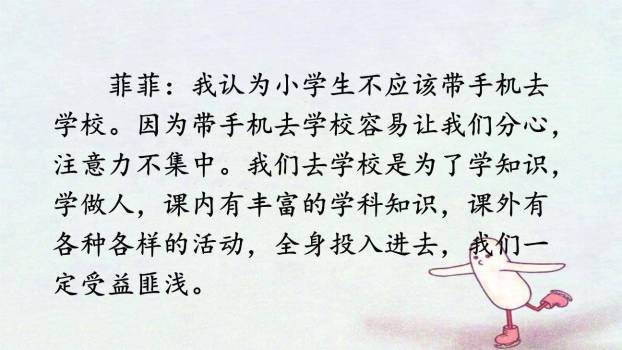 菲菲：我认为小学生不应该带手机去
学校。因为带手机去学校容易让我们分心，
注意力不集中。我们去学校是为了学知识，
学做人，课内有丰富的学科知识，课外有
各种各样的活动，全身投入进去，我们一
定受益匪浅。